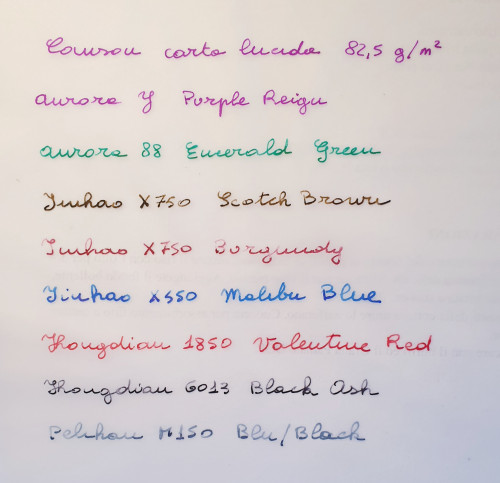 Canson carta lucida 82,5 g/m²
aurora Y Purple Reign
aurora 88 Emerald Green
Jinhao X750 Scotch Brown
Jinhao X750 Burgundy
Jinhao X550 Malibu Blue
Hongdian 1850 Valentine Red
Hongdian 6013 Black Ash
Pelikan M150 Blu/Black